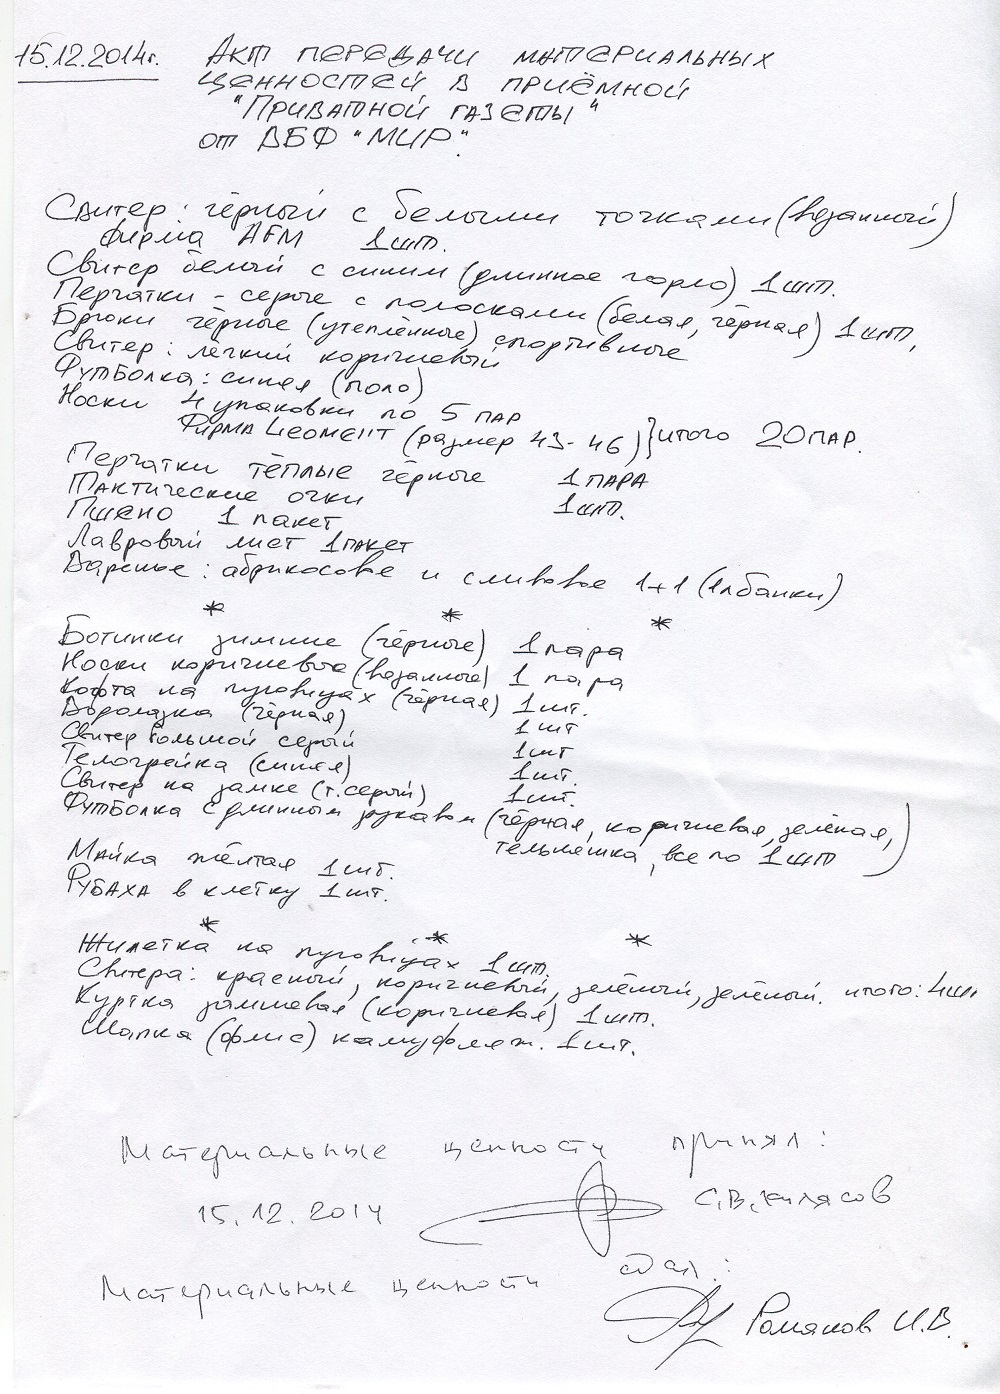 15.12.2014г. Акт передачи материальных
ценностей в приёмной
"Приватной газеты"
от ВБФ "МИР".
Свитер: чёрный с белыми точками (вязанный)
фирма AFM 1 шт.
Свитер белый с синим (длинное горло) 1 шт.
Перчатки - серые с полосками (белая, чёрная) 1 шт,
Брюки чёрные (утеплённые) спортивные
Свитер: лёгкий коричневый
Футболка: синяя (поло)
Носки 4 упаковки по 5 пар
Фирма (размер 43-46) } итого 20 пар.
Перчатки тёплые чёрные 1 пара
Тактические очки 1 шт.
Пшено 1 пакет
Лавровый лист 1 пакет
Варенье: абрикосовое и сливовое 1+1 (1л банки)
* * *
Ботинки зимние (чёрные) 1 пара
Носки коричневые (вязанные) 1 пара
Кофта на пуговицах (чёрная) 1 шт.
Водолазка (чёрная) 1 шт
Свитер большой серый 1 шт
Телогрейка (синяя) 1 шт.
Свитер на замке (т. серый) 1 шт.
Футболка с длинным рукавом (чёрная, коричневая, зелёная,
тельняшка, все по 1 шт)
Майка жёлтая 1 шт.
Рубаха в клетку 1 шт.
* * *
Жилетка на пуговицах 1 шт.
Свитера: красный, коричневый, зелёный, зелёный. итого: 4 шт
Куртка замшевая (коричневая) 1 шт.
Шапка (флис) камуфляж. 1 шт.
Материальные ценности принял:
15.12.2014 С.В.
Материальные ценности сдал:
И.В.